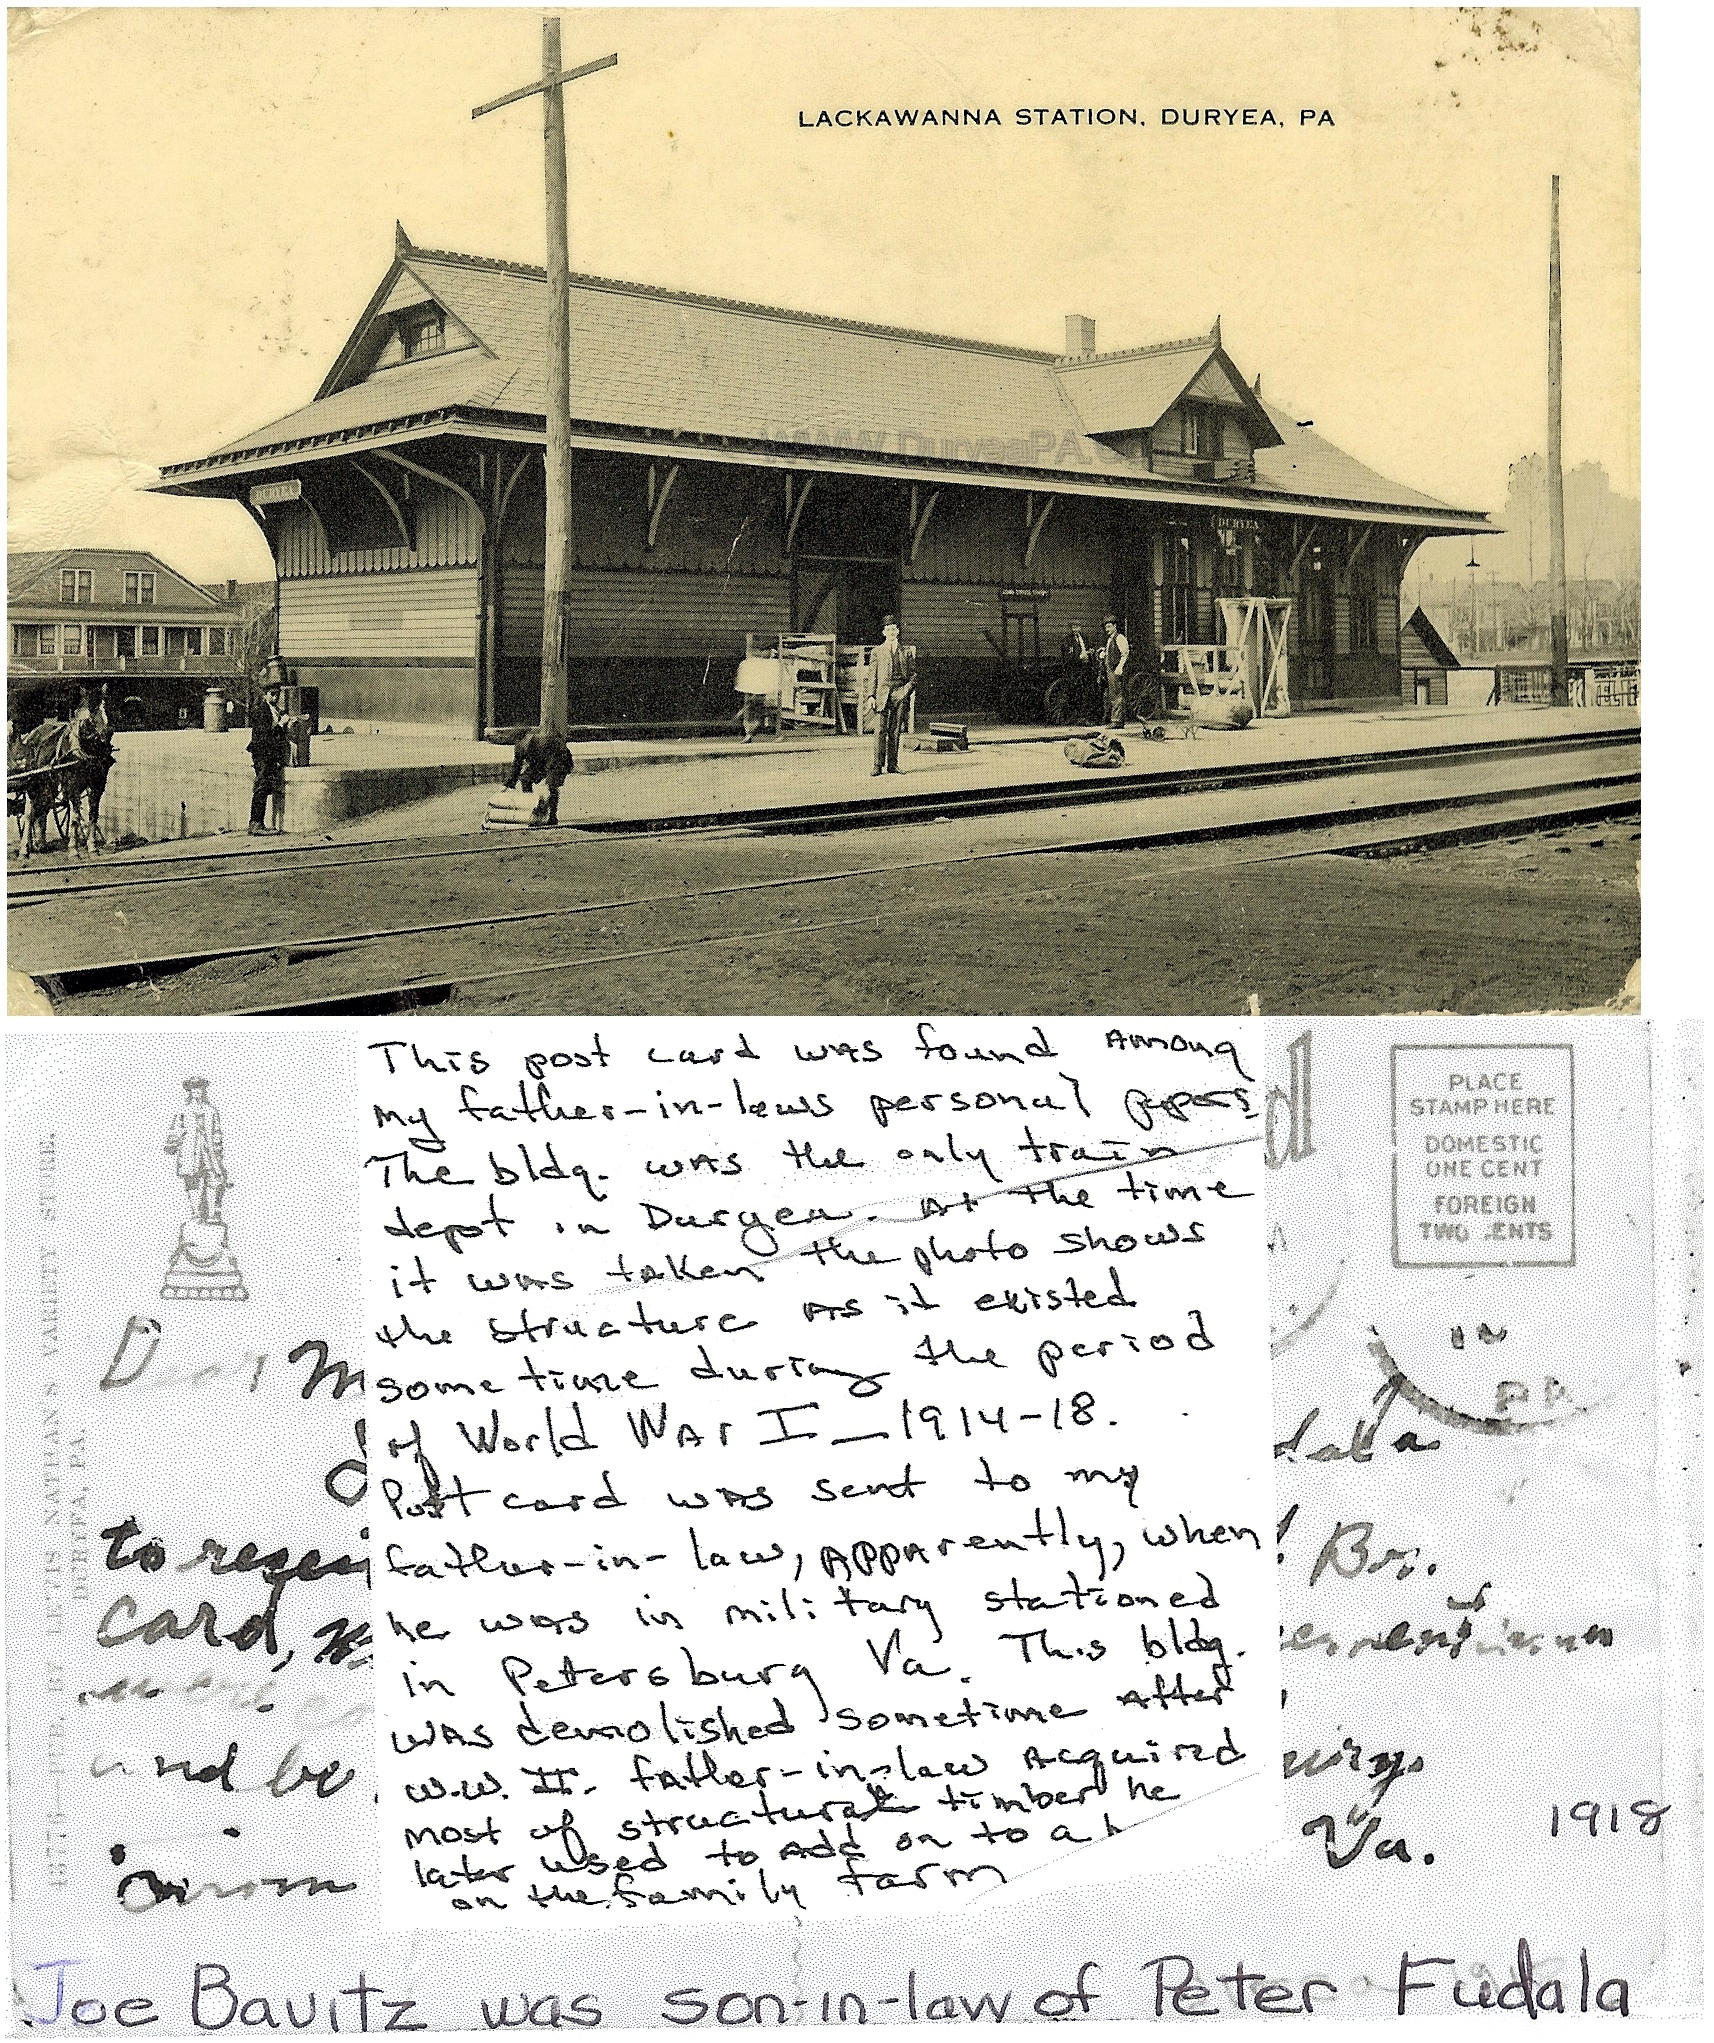 LACKAWANNA STATION, DURYEA, PA
www.DuryeaPA.
DURYEA
DURYEA
This post card was found among
my father-in-laws personal papers.
The bldg. was the only train
depot in Duryea. At the time
it was taken the photo shows
the structure as it existed
sometime during the period
of World War I — 1914-18.
Post card was sent to my
father-in-law, apparently, when
he was in military stationed
in Petersburg Va. This bldg.
was demolished sometime after
W.W. II. father-in-law acquired
most of structural timber he
later used to add on to a
on the family farm
PLACE
STAMP HERE
DOMESTIC
ONE CENT
FOREIGN
TWO CENTS
PA
Dear M
dala
to recei
Bro.
card,
and be
Va.
1918
Joe Bavitz was son-in-law of Peter Fudala